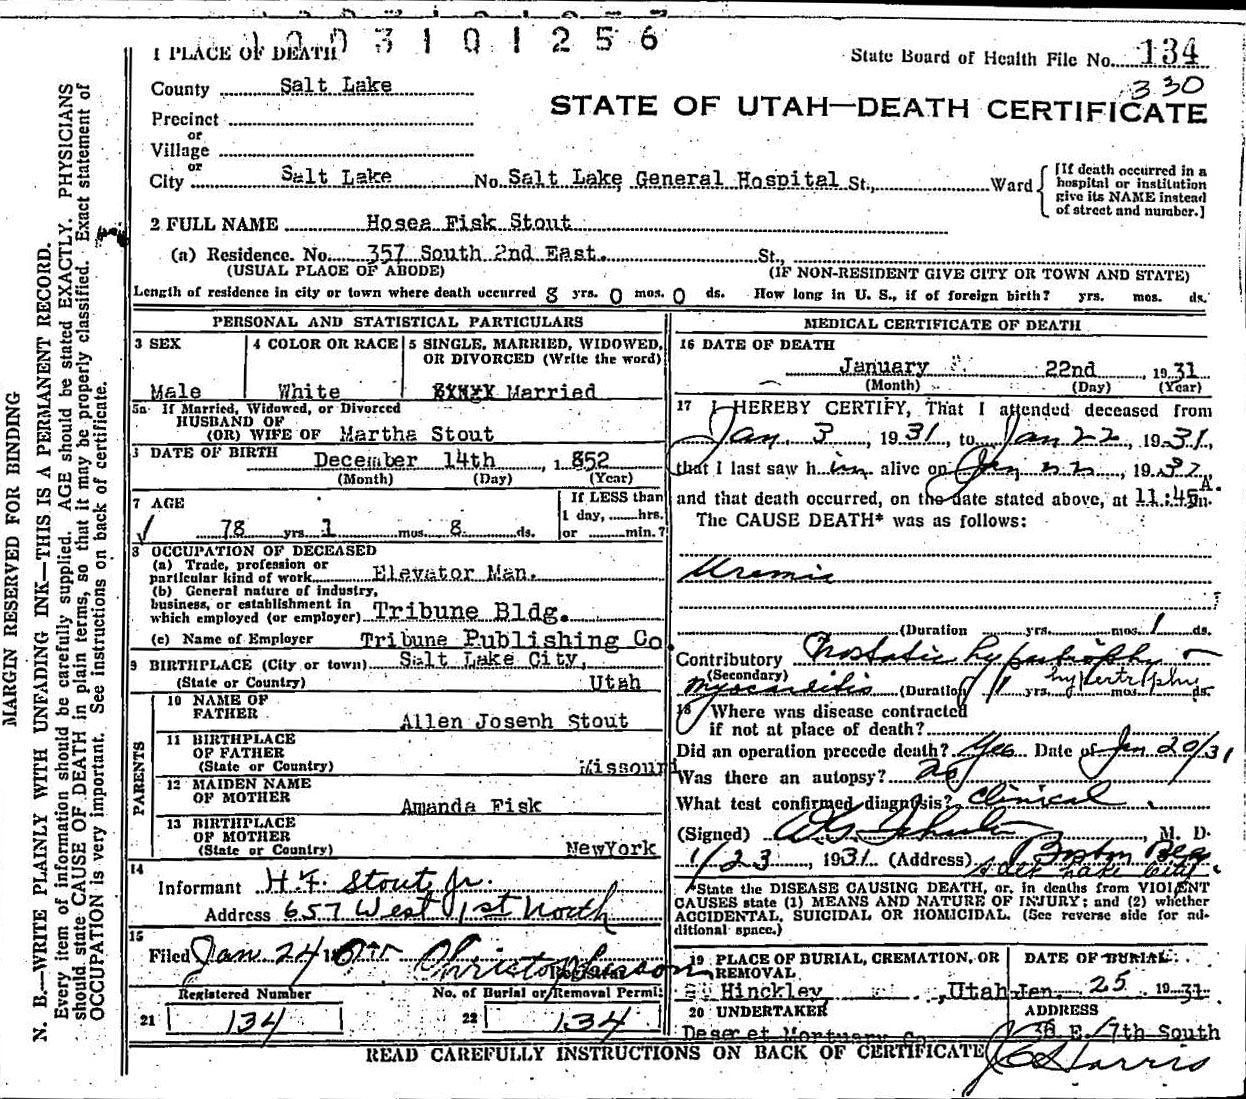 1003101256
1 PLACE OF DEATH
State Board of Health File No. 134
330
County Salt Lake
STATE OF UTAH—DEATH CERTIFICATE
Precinct
or
Village
or
City Salt Lake No. Salt Lake General Hospital St., Ward
[If death occurred in a
hospital or institution
give its NAME instead
of street and number.]
2 FULL NAME Hosea Fisk Stout
(a) Residence. No. 357 South 2nd East. St.,
(USUAL PLACE OF ABODE) (IF NON-RESIDENT GIVE CITY OR TOWN AND STATE)
Length of residence in city or town where death occurred 8 yrs. 0 mos. 0 ds. How long in U. S., if of foreign birth? yrs. mos. ds.
PERSONAL AND STATISTICAL PARTICULARS
3 SEX
Male
4 COLOR OR RACE
White
5 SINGLE, MARRIED, WIDOWED,
OR DIVORCED (Write the word)
Married
5a If Married, Widowed, or Divorced
HUSBAND OF
(OR) WIFE OF Martha Stout
DATE OF BIRTH December 14th, 1852
(Month) (Day) (Year)
7 AGE
78 yrs. 1 mos. 8 ds.
If LESS than
1 day, hrs.
or min.?
8 OCCUPATION OF DECEASED
(a) Trade, profession or
particular kind of work Elevator Man.
(b) General nature of industry,
business, or establishment in
which employed (or employer) Tribune Bldg.
(c) Name of Employer Tribune Publishing Co.
9 BIRTHPLACE (City or town) Salt Lake City,
(State or Country) Utah
PARENTS
10 NAME OF
FATHER Allen Joseph Stout
11 BIRTHPLACE
OF FATHER
(State or Country) Missouri
12 MAIDEN NAME
OF MOTHER Amanda Fisk
13 BIRTHPLACE
OF MOTHER
(State or Country) NewYork
14
Informant H. F. Stout, Jr.
Address 657 West 1st North
15
Filed Jan 24
Registrar
Registered Number
21 134
No. of Burial or Removal Permit
22 134
MEDICAL CERTIFICATE OF DEATH
16 DATE OF DEATH
January 22nd, 1931
(Month) (Day) (Year)
17 I HEREBY CERTIFY, That I attended deceased from
Jan. 3, 1931, to Jan 22, 1931,
that I last saw him alive on Jan 22, 193
and that death occurred, on the date stated above, at 11:45 A.m.
The CAUSE DEATH* was as follows:
Uremia
(Duration yrs. mos. 1 ds.
Contributory Prostatic hypertrophy
(Secondary) hypertrophy
Myocarditis (Duration 1 yrs. mos. ds.
18 Where was disease contracted
if not at place of death?
Did an operation precede death? Yes Date of Jan 20/31
Was there an autopsy? no
What test confirmed diagnosis? Clinical
(Signed) , M. D.
1/23, 1931 (Address) Boston Bldg
Salt Lake City
*State the DISEASE CAUSING DEATH, or, in deaths from VIOLENT
CAUSES state (1) MEANS AND NATURE OF INJURY; and (2) whether
ACCIDENTAL, SUICIDAL OR HOMICIDAL. (See reverse side for ad-
ditional space.)
19 PLACE OF BURIAL, CREMATION, OR
REMOVAL
Hinckley, Utah
DATE OF BURIAL
Jan. 25 1931
20 UNDERTAKER
Deseret Mortuary Co
ADDRESS
36 E. 7th South
READ CAREFULLY INSTRUCTIONS ON BACK OF CERTIFICATE
J E Harris
MARGIN RESERVED FOR BINDING
N. B.—WRITE PLAINLY WITH UNFADING INK—THIS IS A PERMANENT RECORD.
Every item of information should be carefully supplied. AGE should be stated EXACTLY. PHYSICIANS
should state CAUSE OF DEATH in plain terms, so that it may be properly classified. Exact statement of
OCCUPATION is very important. See instructions on back of certificate.